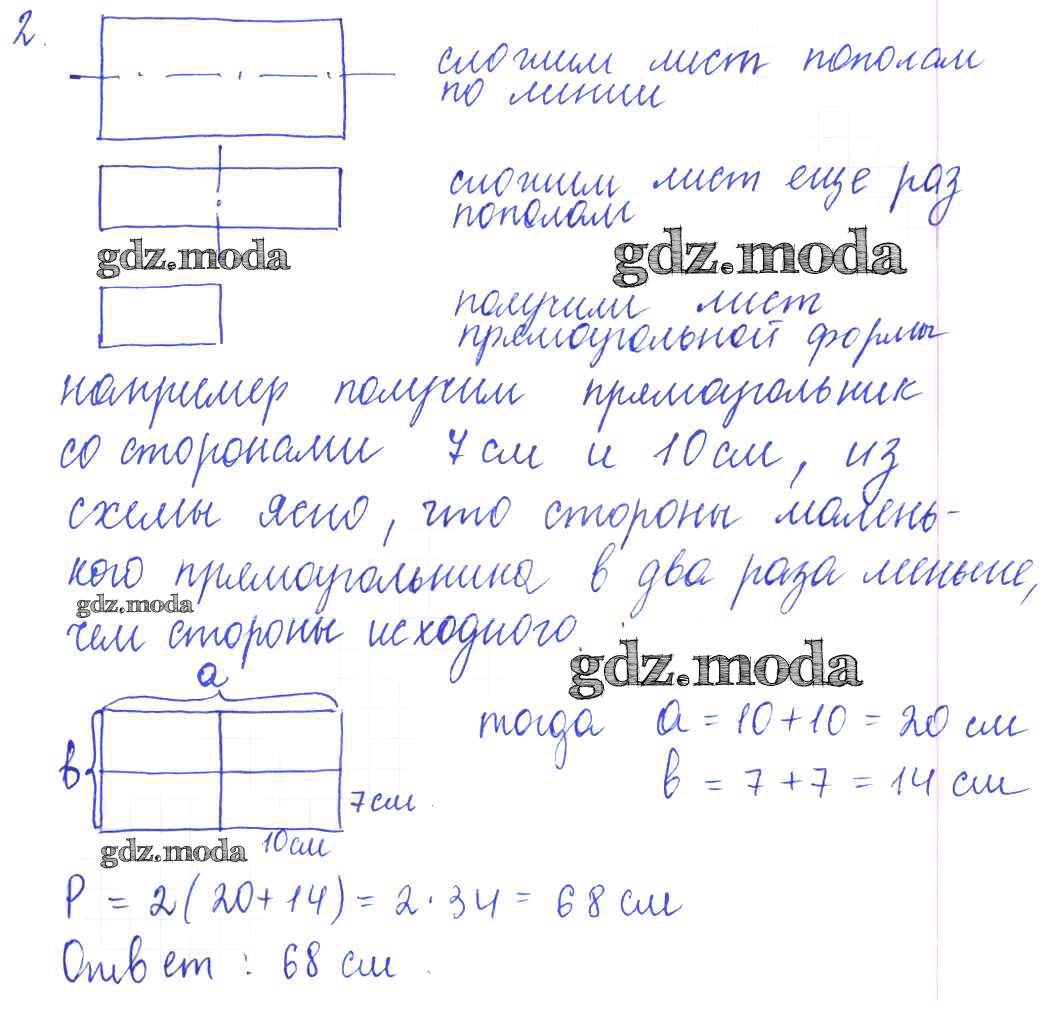 2.
сложим лист пополам
по линии
сложим лист еще раз
пополам
gdz.moda
gdz.moda
получили лист
прямоугольной формы
например получим прямоугольник
со сторонами 7 см и 10 см, из
схемы ясно, что стороны малень-
кого прямоугольника в два раза меньше,
gdz.moda
чем стороны исходного.
gdz.moda
a
тогда a = 10 + 10 = 20 см
в
в = 7 + 7 = 14 см
7 см
10 см
gdz.moda
P = 2 (20 + 14) = 2 · 34 = 68 см
Ответ : 68 см.